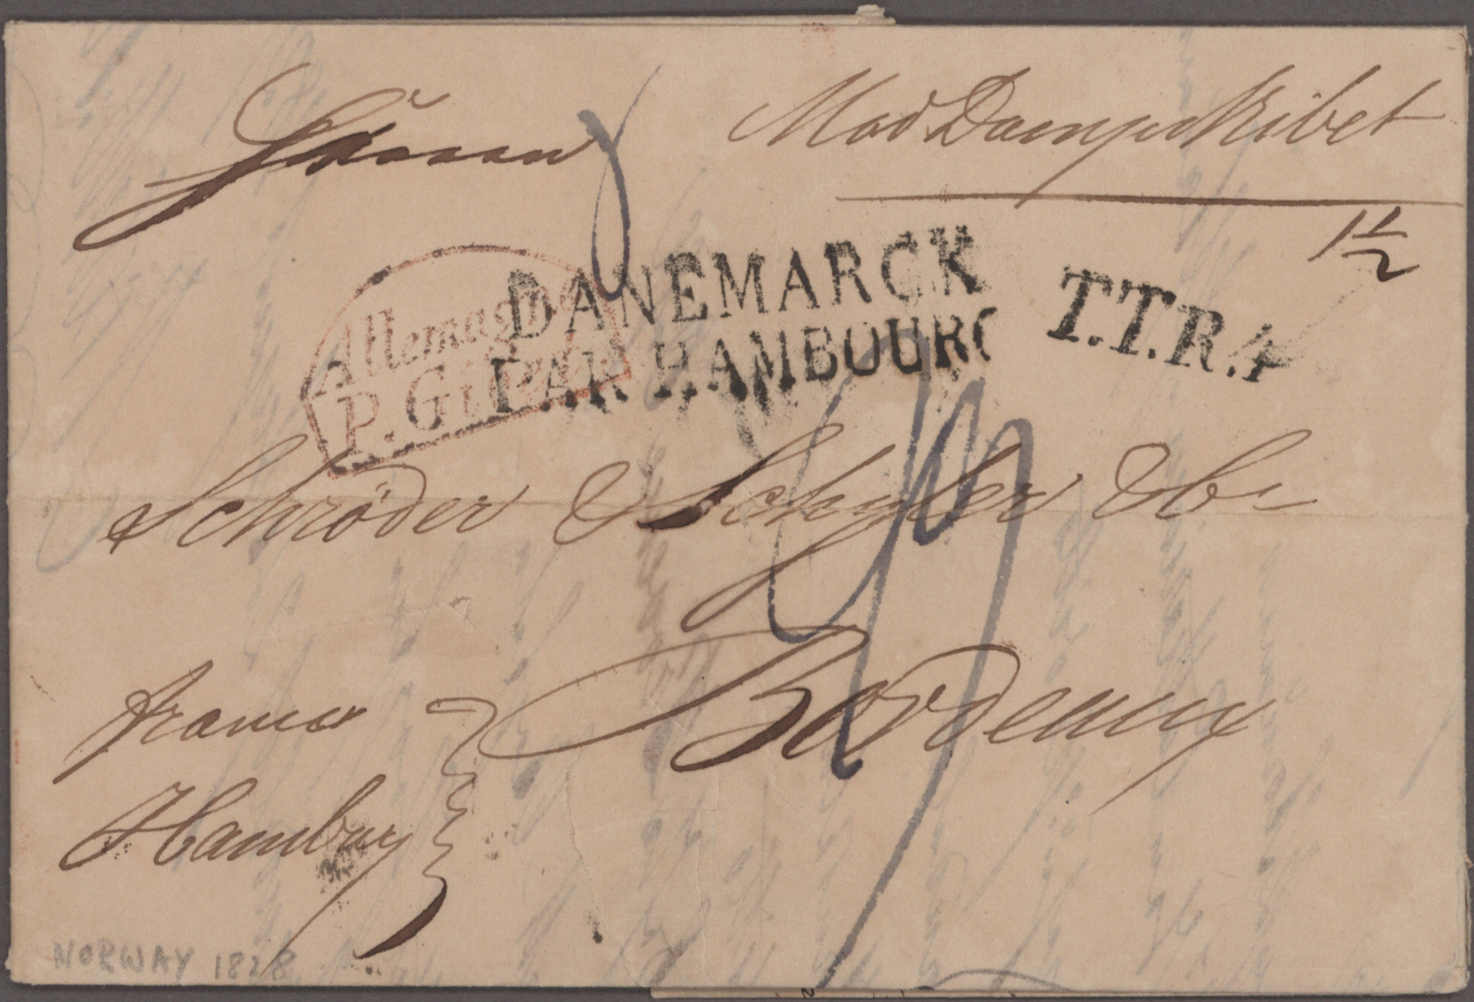 Med Dampskibet
1 1/2
DANEMARCK
PAR HAMBOURG
T.T.R.4
Allemagne
P. Givet
Schrøder & Schyler & Co
Bordeaux
franco
Hamburg
NORWAY 1828